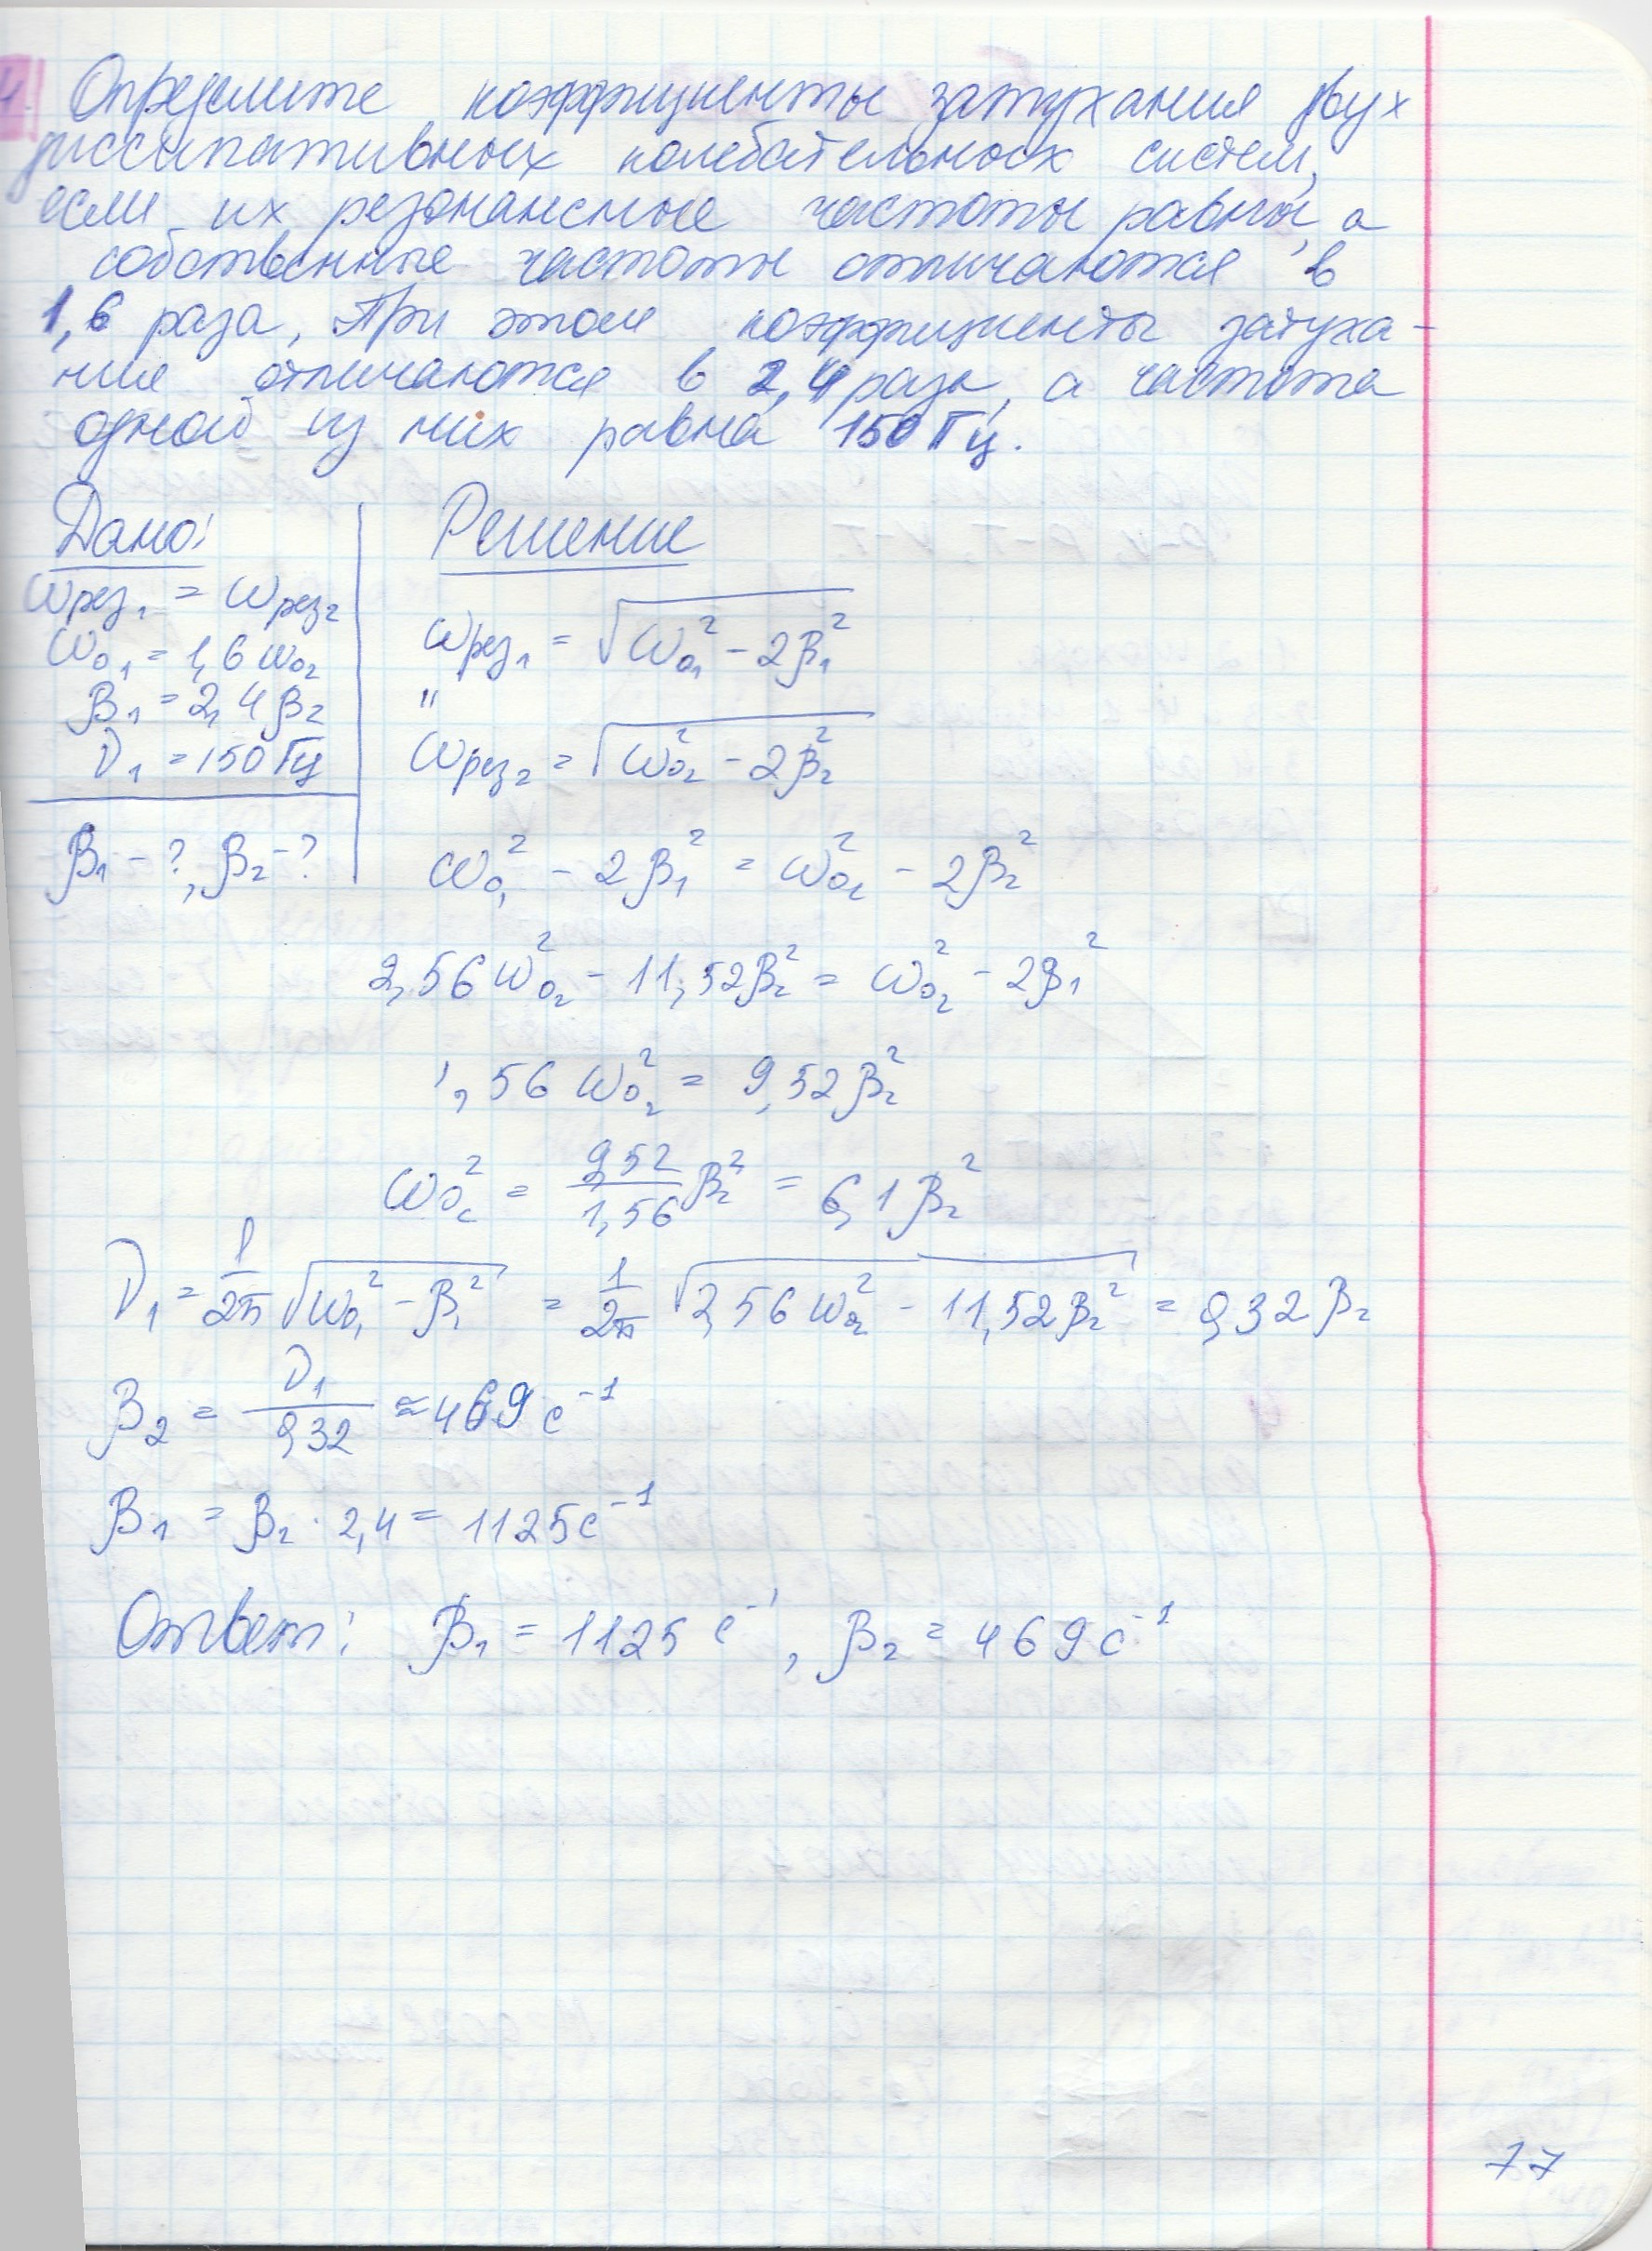 4. Определите коэффициенты затухания двух
диссипативных колебательных систем,
если их резонансные частоты равны, а
собственные частоты отличаются в
1,6 раза, При этом коэффициенты затуха-
ния отличаются в 2,4 раза, а частота
одной из них равна 150 Гц.
Дано:
ωрез₁ = ωрез₂
ω₀₁ = 1,6 ω₀₂
β₁ = 2,4 β₂
ν₁ = 150 Гц
β₁ - ?, β₂ - ?
Решение
ωрез₁ = √(ω₀₁² - 2β₁²)
"
ωрез₂ = √(ω₀₂² - 2β₂²)
ω₀₁² - 2β₁² = ω₀₂² - 2β₂²
2,56 ω₀₂² - 11,52β₂² = ω₀₂² - 2β₁²
1,56 ω₀₂² = 9,52β₂²
ω₀₂² = 9,52/1,56 β₂² = 6,1 β₂²
ν₁ = 1/2π √(ω₀₁² - β₁²) = 1/2π √(2,56 ω₀₂² - 11,52β₂²) = 0,32 β₂
β₂ = ν₁/0,32 ≈ 469 с⁻¹
β₁ = β₂ · 2,4 = 1125 с⁻¹
Ответ: β₁ = 1125 с⁻¹, β₂ = 469 с⁻¹
17